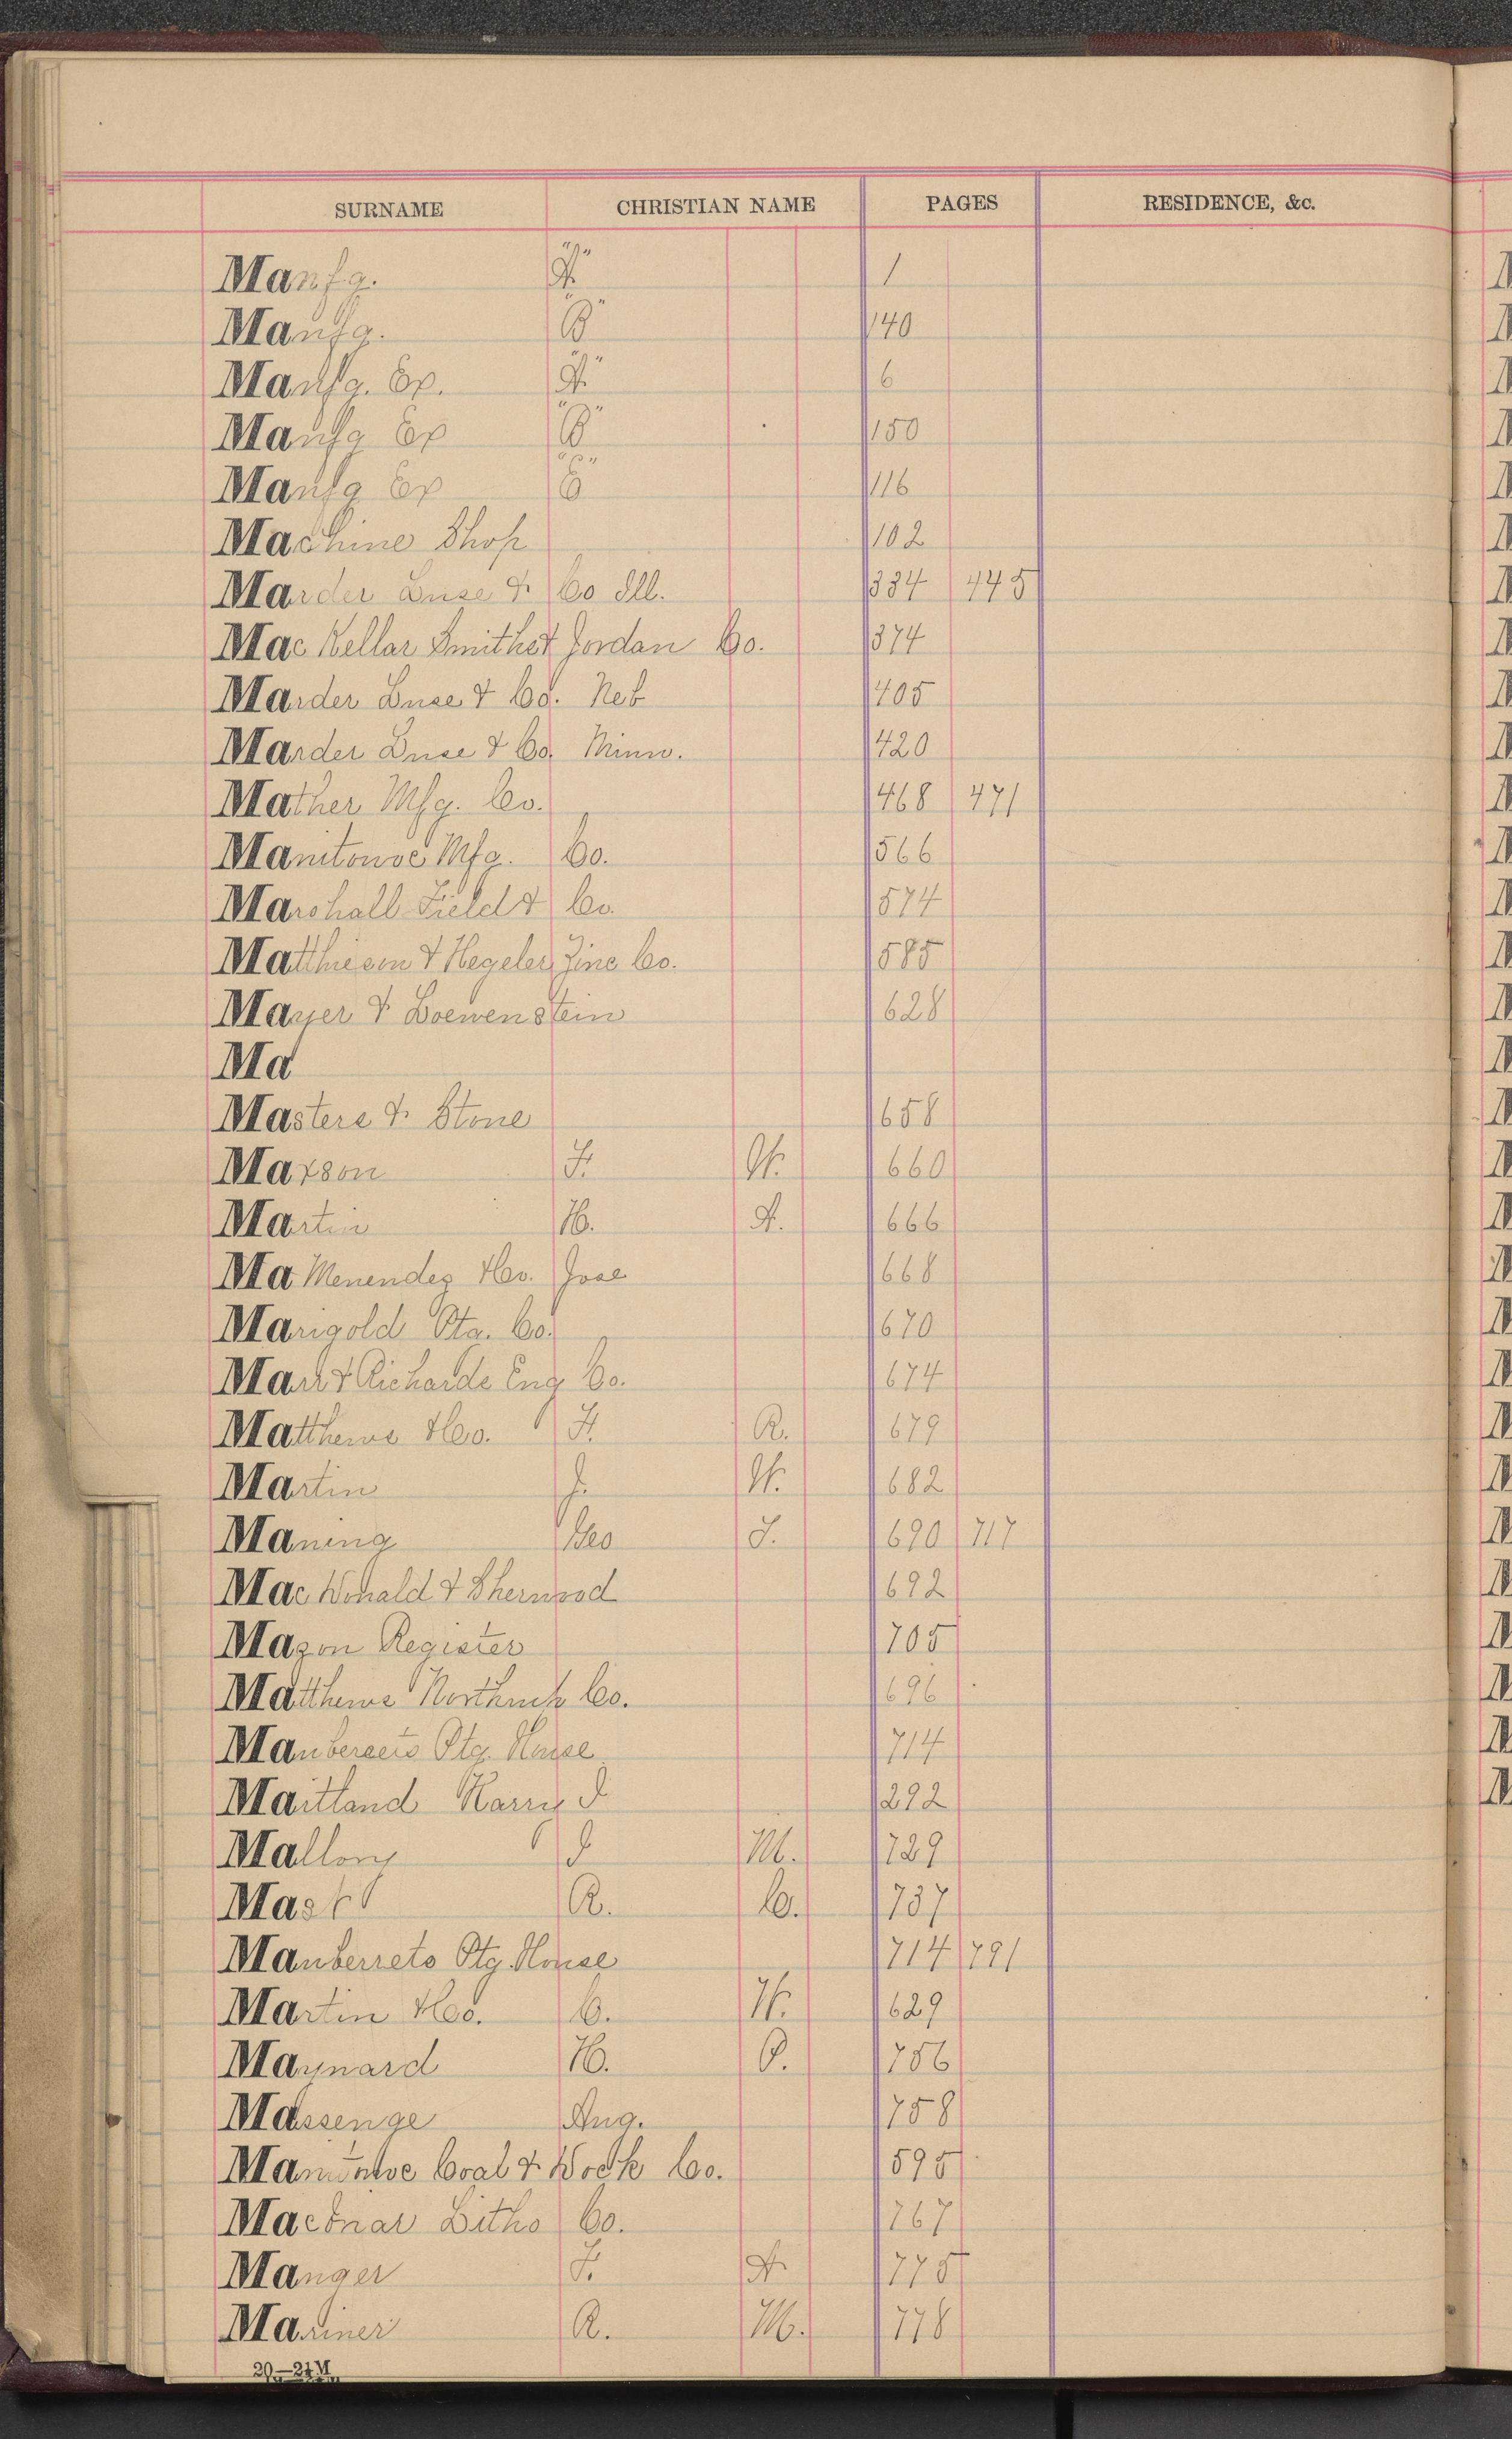 SURNAME CHRISTIAN NAME PAGES RESIDENCE, &c.
Manfg. "A" 1
Manfg. "B" 140
Manfg. Ex. "A" 6
Manfg Ex "B" 150
Manfg Ex "C" 116
Machine Shop 102
Marder Luse & Co Ill. 384 445
Mac Kellar Smith & Jordan Co. 374
Marder Luse & Co. Neb 405
Marder Luse & Co. Minn. 420
Mather Mfg. Co. 468 471
Manitowoc Mfg. Co. 566
Marshall Field & Co. 574
Matthiesen & Hegeler Zinc Co. 585
Mayer & Loewenstein 628
Ma
Masters & Stone 658
Maxson F. W. 660
Martin H. A. 666
Ma Menendez & Co. Jose 668
Marigold Ptg. Co. 670
Marr & Richards Eng Co. 674
Matthews & Co. F. R. 679
Martin J. W. 682
Maning Geo J. 690 717
Mac Donald & Sherwood 692
Mazon Register 705
Matthews Northrup Co. 696
Manberrets Ptg. House 714
Maitland Harry I 292
Mallory I M. 729
Mast R. C. 737
Manberrets Ptg. House 714 791
Martin & Co. C. H. 629
Maynard H. P. 756
Massenge Aug. 758
Coal & Dock Co. 595
Litho Co. 767
Manger F. A 775
Mariner R. M. 778
20—24 M